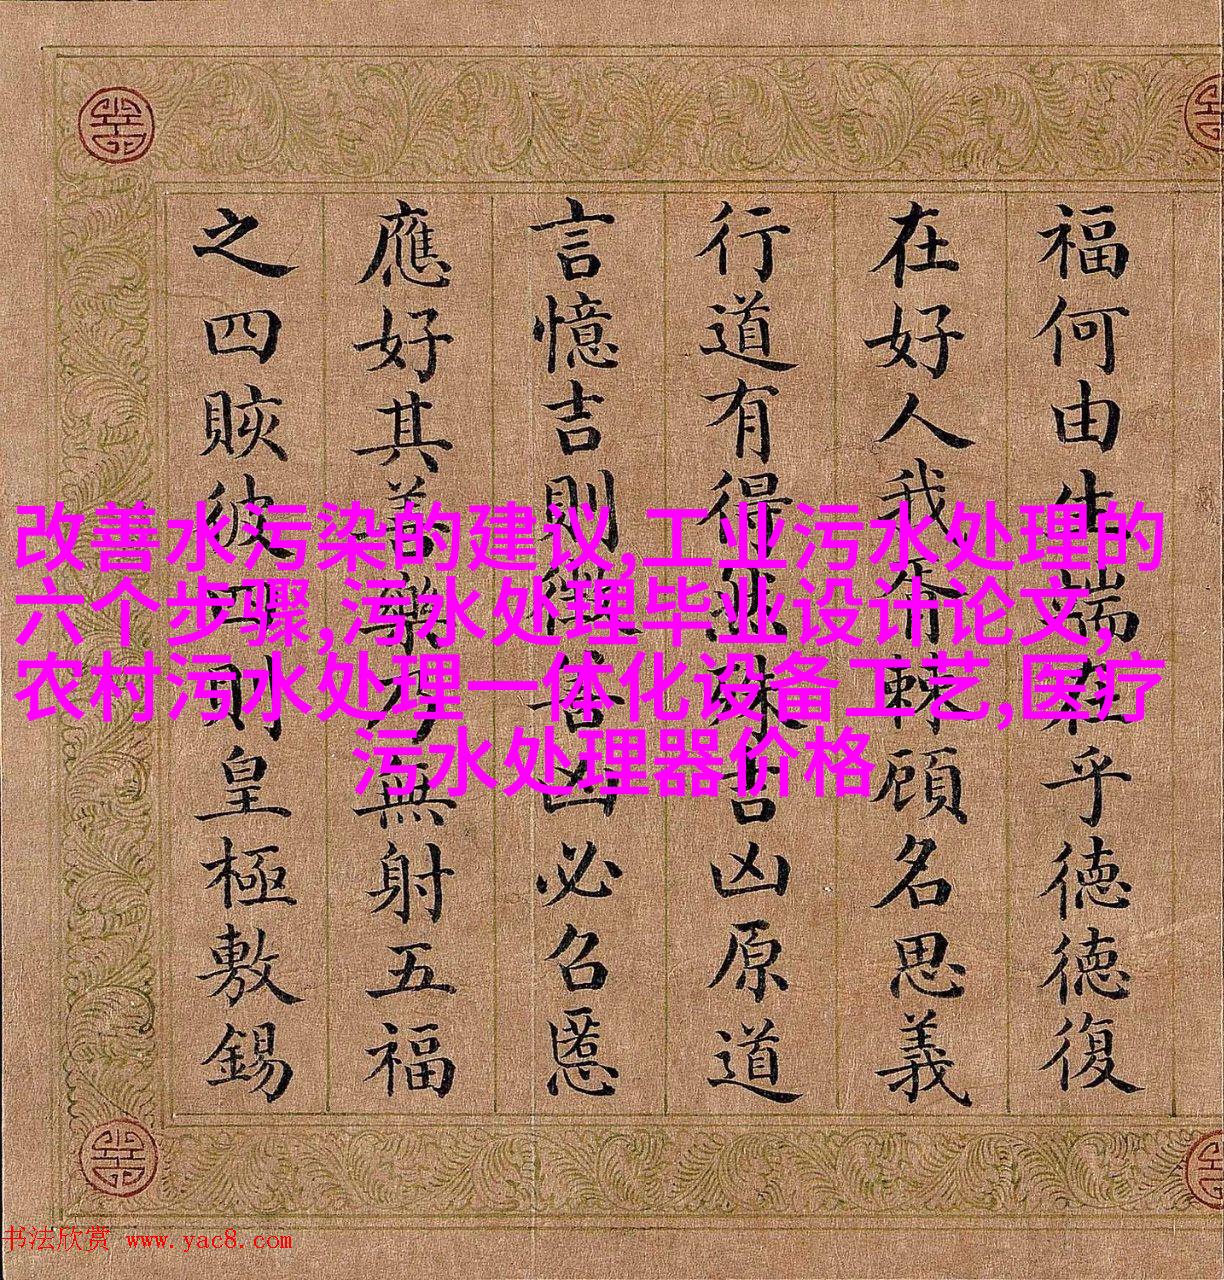 福何由生端在乎德德復
在好人我斎棘顧名思義
行道有得 殊吉凶原道
言憶吉則 善凶必召慝
應好其善樂乃無射五福
之四賅彼四則皇極敷錫
改善水污染的建议,工业污水处理的
六个步骤,污水处理毕业设计论文,
农村污水处理一体化设备工艺,医疗
污水处理器价格
书法欣赏 www.yac8.com